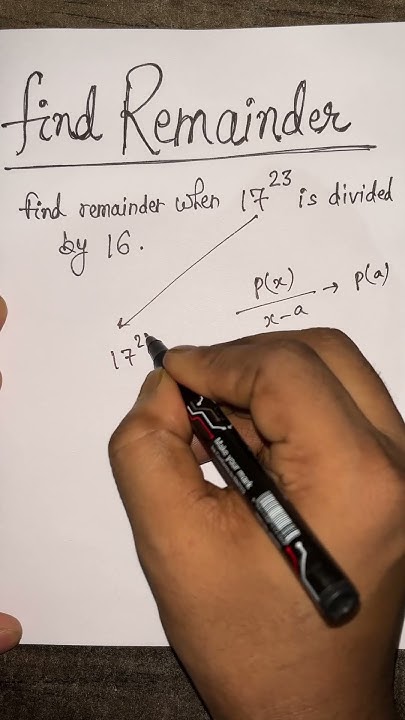 find Remainder
find remainder when 17^23 is divided
by 16.
P(x)
x-a → P(a)
17^2
Make your mark